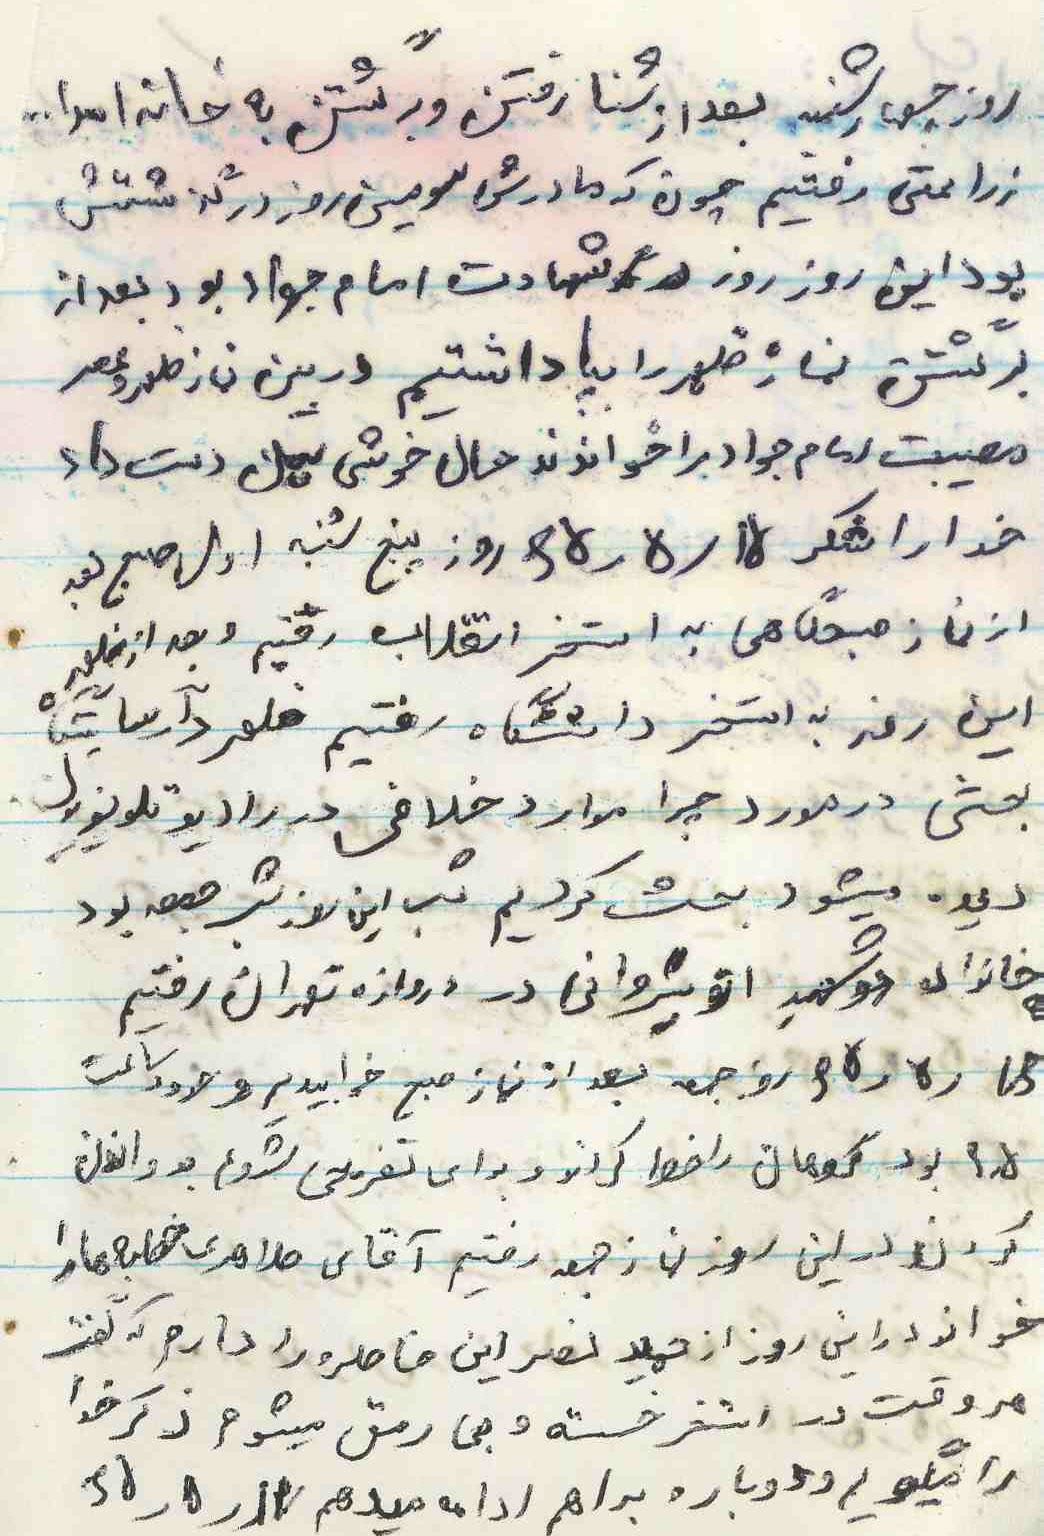 روز چهارشنبه بعد از شنا رفتن و برگشتن به خانه اسدا...
زراعتی رفتیم چون که مادرش سومین روز درگذشتش
بود این روز روز شهادت امام جواد بود بعد از
برگشتن نماز ظهر را بپا داشتیم در بین نماز ظهر و عصر
مصیبت امام جواد را خواندند حال خوشی دست داد
خدا را شکر روز پنج شنبه اول صبح بعد
از نماز صبحگاهی به استخر انقلاب رفتیم و بعد از ظهر
این روز به استخر دانشگاه رفتیم ظهر در آسایشگاه
بحثی در مورد چرا موارد خلافی در رادیو تلویزیون
دیده میشود بحث کردیم شب این روز شب جمعه بود
خانواده دو شهید انوشیروانی در دروازه تهران رفتیم
روز جمعه بعد از نماز صبح خوابیدیم و حدود ساعت
بود گروهان را کردند و برای تفریحی شروع به دواندن
کردند در این روز نماز جمعه رفتیم آقای طاهری خطبه ها را
خواند در این روز از نصر این خاطره را دارم که گفت
هر وقت در استخر خسته و بی رمق میشوم ذکر خدا
را میگویم و دوباره براهم ادامه میدهم